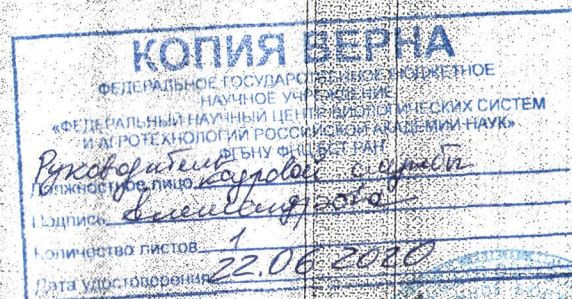 КОПИЯ ВЕРНА
ФЕДЕРАЛЬНОЕ ГОСУДАРСТВЕННОЕ БЮДЖЕТНОЕ
НАУЧНОЕ УЧРЕЖДЕНИЕ
«ФЕДЕРАЛЬНЫЙ НАУЧНЫЙ ЦЕНТР БИОЛОГИЧЕСКИХ СИСТЕМ
И АГРОТЕХНОЛОГИЙ РОССИЙСКОЙ АКАДЕМИИ НАУК»
ФГБНУ ФНЦ БСТ РАН
Руководитель кадровой службы
Должностное лицо
Подпись Александрова
Количество листов 1
Дата удостоверения 22.06 2020